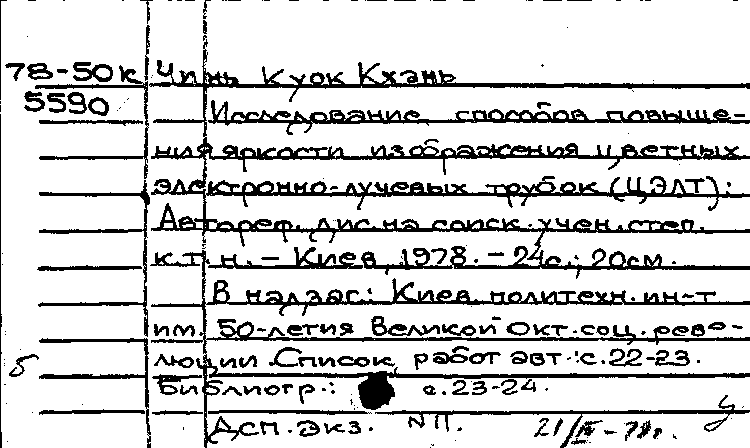 78-50к Чинь Куок Кхань
5590 Исследование способов повыше-
ния яркости изображения цветных
электронно-лучевых трубок (ЦЭЛТ):
Автореф. дис. на соиск. учен. степ.
к.т.н. – Киев, 1978. – 24с.; 20см.
В надзаг.: Киев. политехн. ин-т
им. 50-летия Великой Окт. соц. рево-
люции. Список работ авт.: с.22-23.
Библиогр.: с.23-24.
ДСП. Экз. №11.